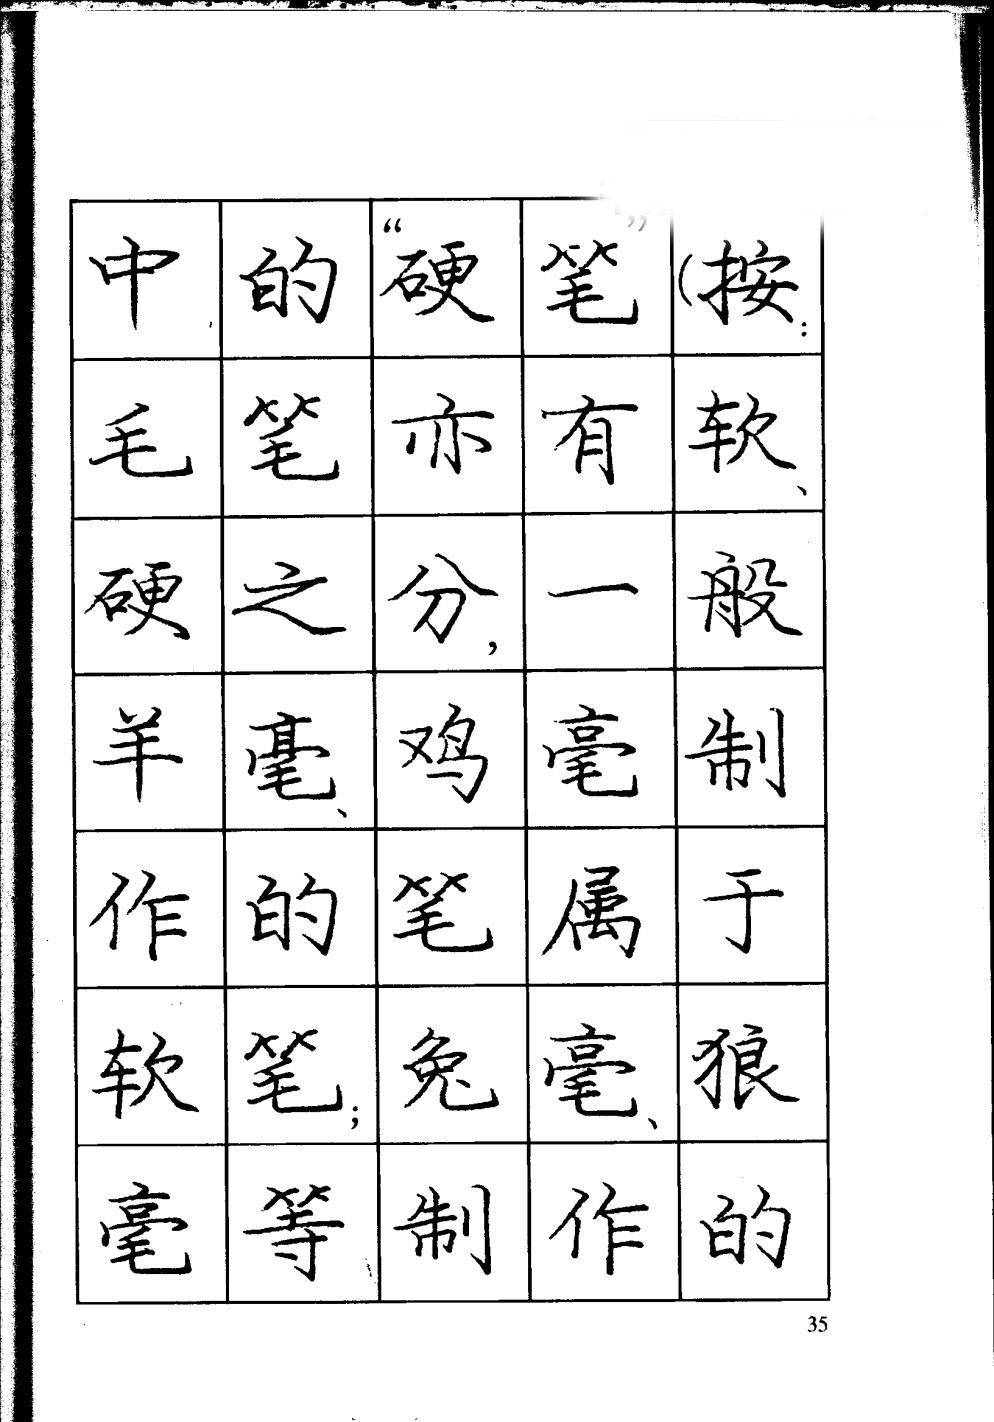 中的“硬笔”(按:
毛笔亦有软、
硬之分,一般
羊毫、鸡毫制
作的笔属于
软笔;兔毫、狼
毫等制作的
35